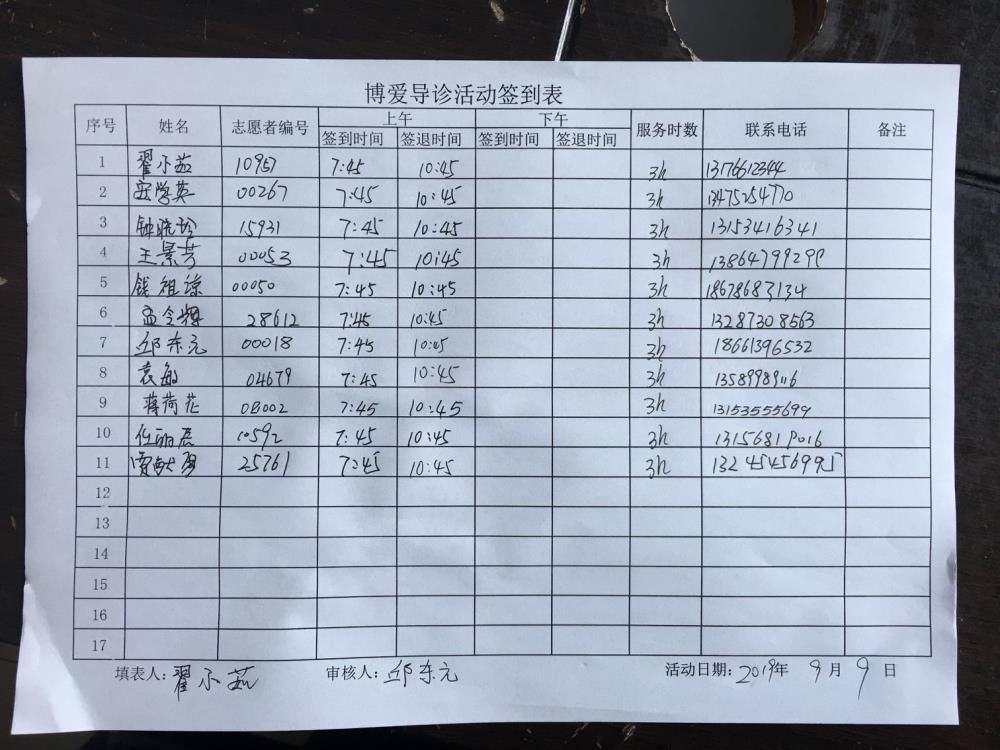 博爱导诊活动签到表
序号 姓名 志愿者编号 上午 下午 服务时数 联系电话 备注
签到时间 签退时间 签到时间 签退时间
1 翟小茹 10957 7:45 10:45 3h 1376612344
2 安学英 00267 7:45 10:45 3h 13475254770
3 钟晓玲 15931 7:45 10:45 3h 13153416341
4 王景芳 00053 7:45 10:45 3h 13864799299
5 钱祖谅 00050 7:45 10:45 3h 18678683134
6 孟令辉 28612 7:45 10:45 3h 13287308563
7 邱东元 00018 7:45 10:45 3h 18661396532
8 袁敏 04679 7:45 10:45 3h 13589989116
9 蒋荷花 08002 7:45 10:45 3h 13153555699
10 任丽 10592 7:45 10:45 3h 13156819016
11 25761 7:45 10:45 3h 13245456995
12
13
14
15
16
17
填表人:翟小茹 审核人:邱东元 活动日期:2019年 9月 9日